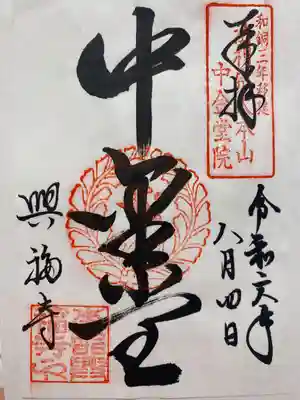 奉拝
和銅三年創建
中金堂院
令和六年
八月四日
中金堂
興福寺